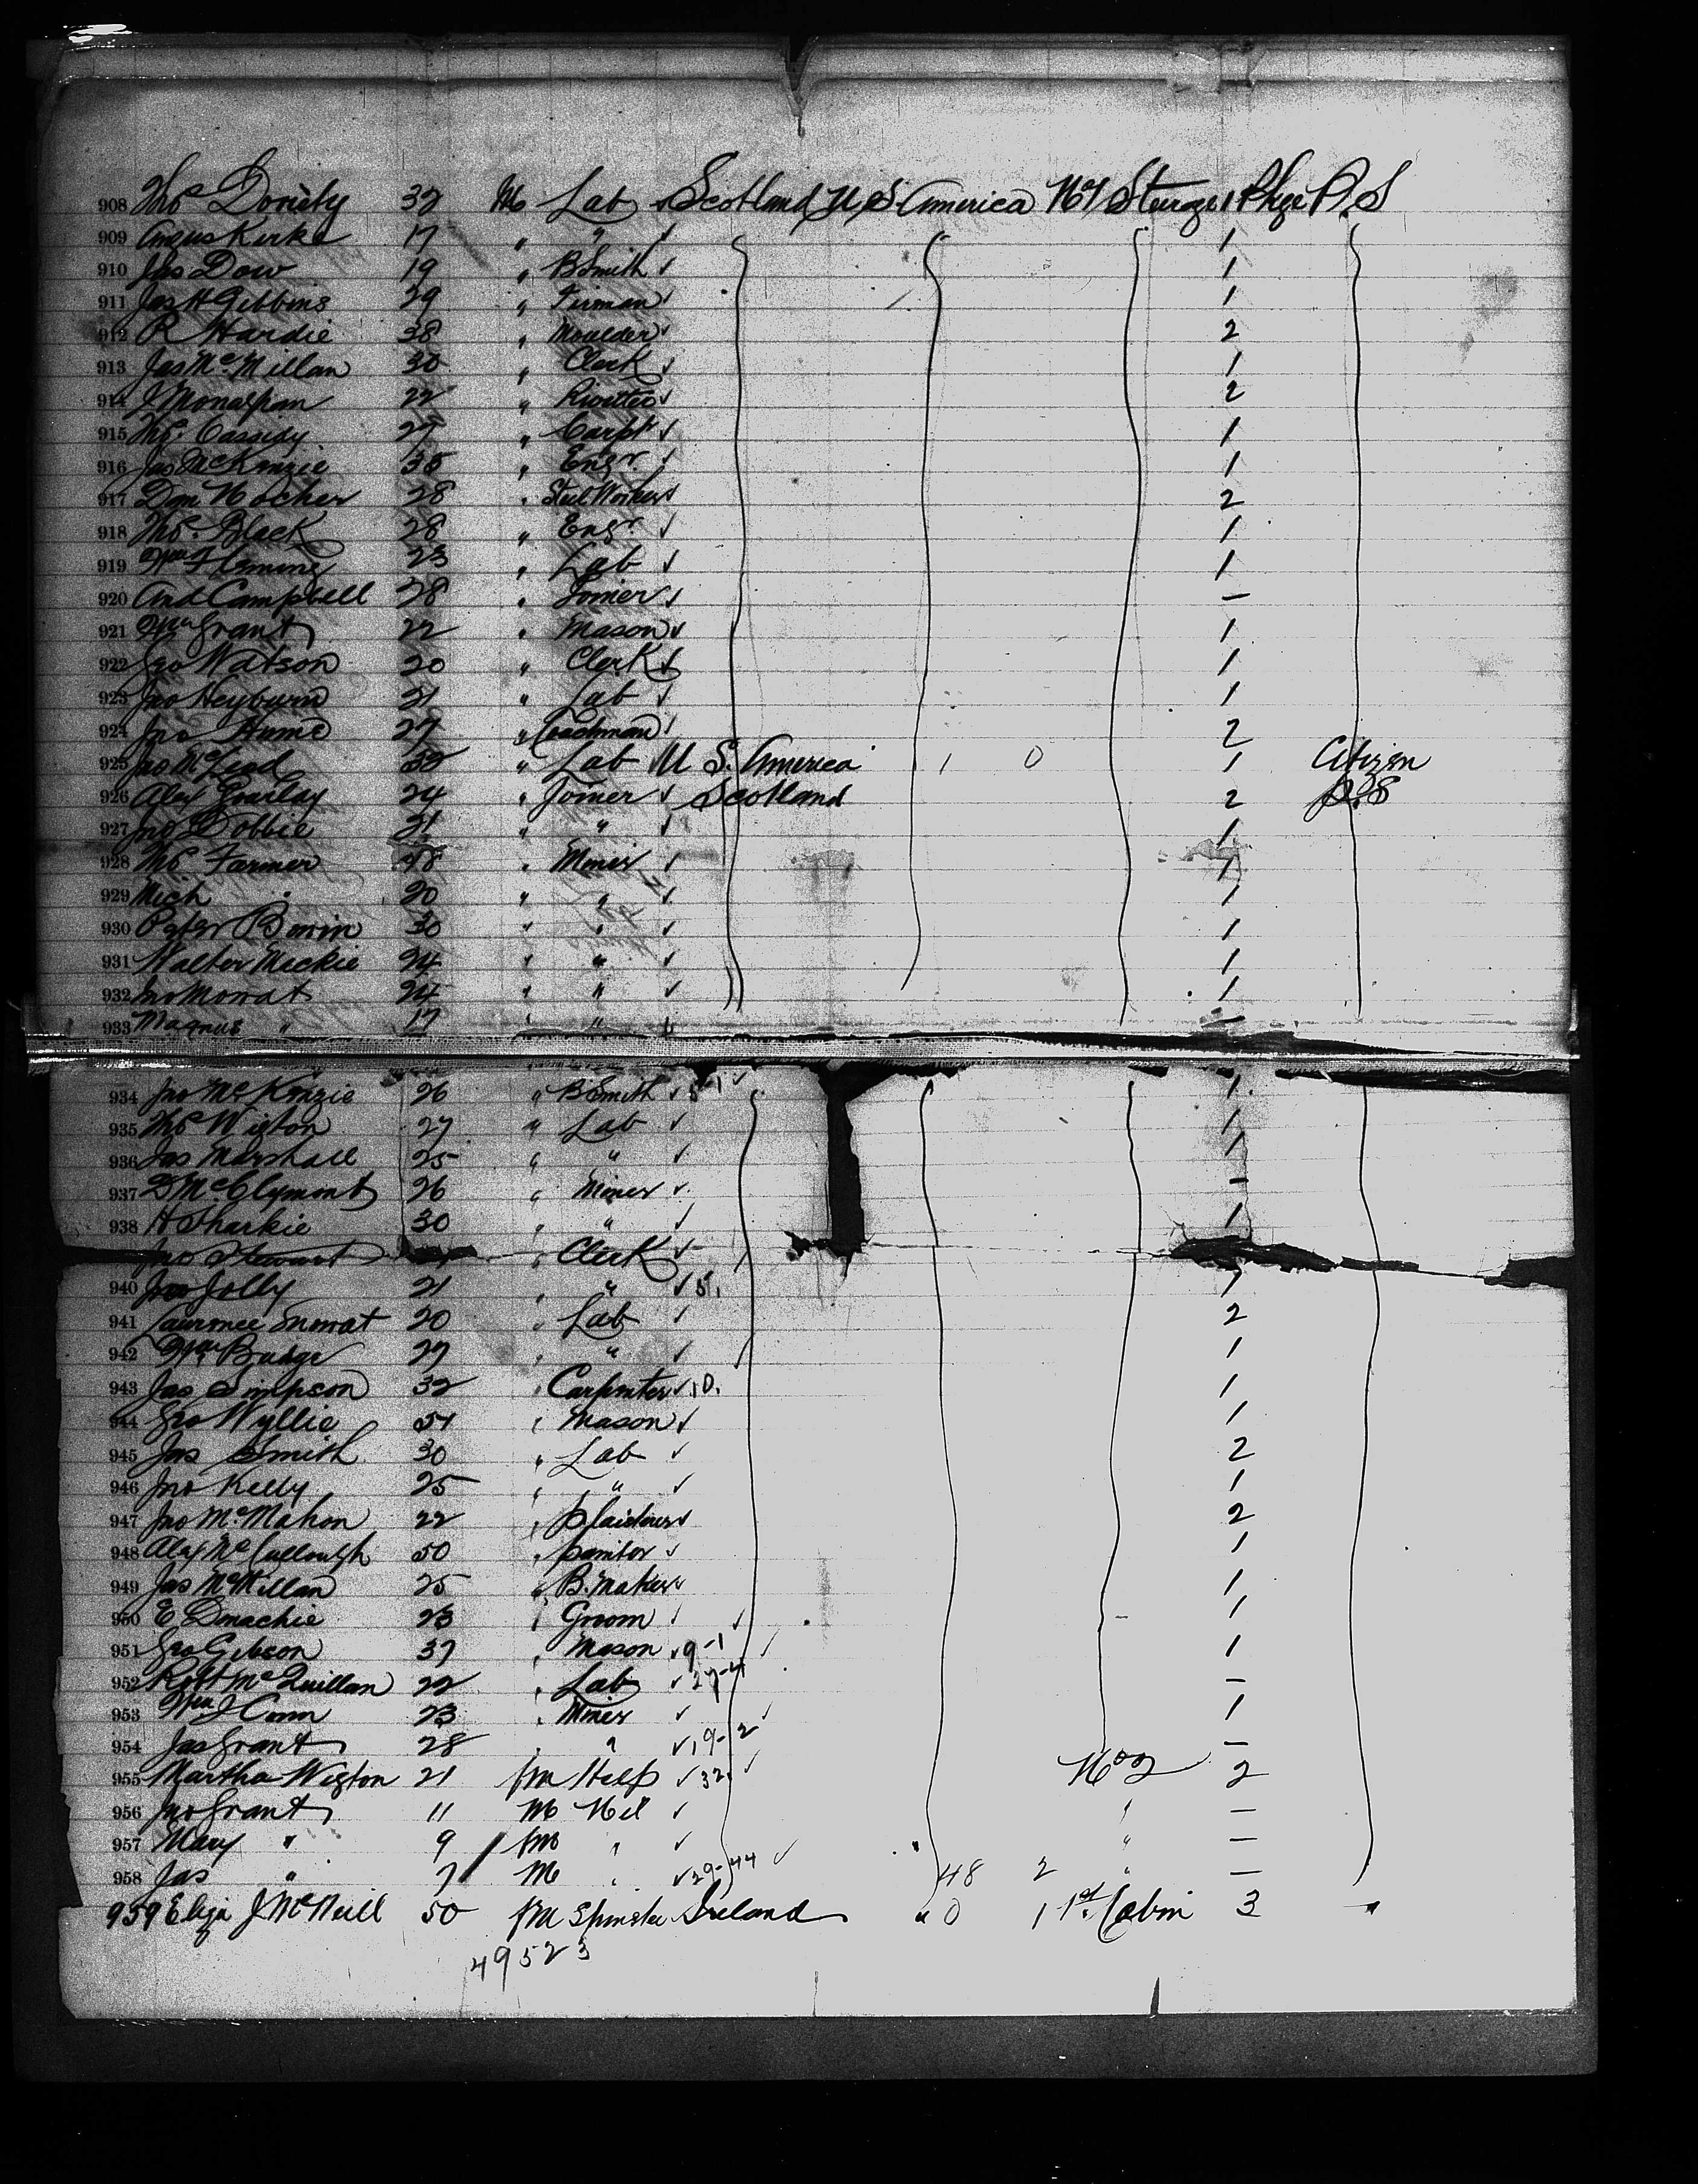 908 Thos Doriety 32 M Lab ✓ Scotland U.S. America No 1 Steerage 1 Pkge P.S
909 Angus Kirke 17 " " ✓ 1
910 Jas Dow 19 " B Smith ✓ 1
911 Jas H Gibbins 29 " Firman ✓ 1
912 R Hardie 38 " Moulder ✓ 2
913 Jas McMillan 30 " Clerk ✓ 1
914 J Monaghan 22 " ✓ 2
915 Thos Cassidy 27 " Carpt ✓ 1
916 Jas McKinzie 38 " Engr. ✓ 1
917 Don 28 " Steel Worker ✓ 2
918 Thos Black 28 " Engr. ✓ 1
919 Wm Fleming 23 " Lab ✓ 1
920 And Campbell 28 " Joiner ✓ —
921 Wm Grant 22 " Mason ✓ 1
922 Geo Watson 20 " Clerk ✓ 1
923 Jno Heyburn 21 " Lab ✓ 1
924 Jno Hume 27 " Coachman ✓ 2
925 Jno McLeod " Lab U S. America 1 0 1 Citizen
926 Alex Gourlay 24 " Joiner ✓ Scotland 2 P.S
927 Jno Dobbie 21 " " ✓ 1
928 Thos Farmer 48 " Miner ✓ 1
929 Mich " 20 " " ✓ 1
930 Peter 30 " " ✓ 1
931 Walter Mackie 24 " " ✓ 1
932 Jno Mowat 24 " " ✓ 1
933 Magnus " 17 " " —
934 Jno McKinzie 26 " B Smith ✓ 5-1 ✓ 1
935 Thos Wigton 27 " Lab ✓ 1
936 Jas Marshall 25 " " ✓ 1
937 D McClymont 26 " Miner ✓ —
938 H Sharkie 30 " " ✓ 1
Jno Stewart " Clerk ✓
940 Jno Jolly 21 " " ✓ 5. 1
941 Laurence Mowat 20 " Lab ✓ 2
942 Wm Budge 27 " " ✓ 1
943 Jas Simpson 32 " Carpenter ✓ 10. 1
944 Geo Wyllie 54 " Mason ✓ 1
945 Jas Smith 30 " Lab ✓ 2
946 Jno Kelly 25 " " ✓ 1
947 Jno McMahon 22 " ✓ 2
948 Alex McCullough 50 " ✓ 1
949 Jas McMillan 25 " B. Maker ✓ 1
950 E Dmachie 23 " Groom ✓ ✓ 1
951 Geo Gibson 37 " Mason ✓ 9-1 1
952 Robt McQuillan 22 " Lab ✓ 27-4 —
953 Wm J Conn 23 " Miner ✓ ✓ 1
954 Jas Grant 28 " " ✓ 19-2 —
955 Martha Wigton 21 fm Help ✓ 32 ✓ No 2 2
956 Jno Grant 11 M Nil ✓ " —
957 Mary " 9 fm " ✓ " —
958 Jas " 7 M " ✓ 29-44 ✓ 48 2 " —
959 Eliza J McNeill 50 fm Spinster Ireland " 0 1 1st Cabin 3 "
49523